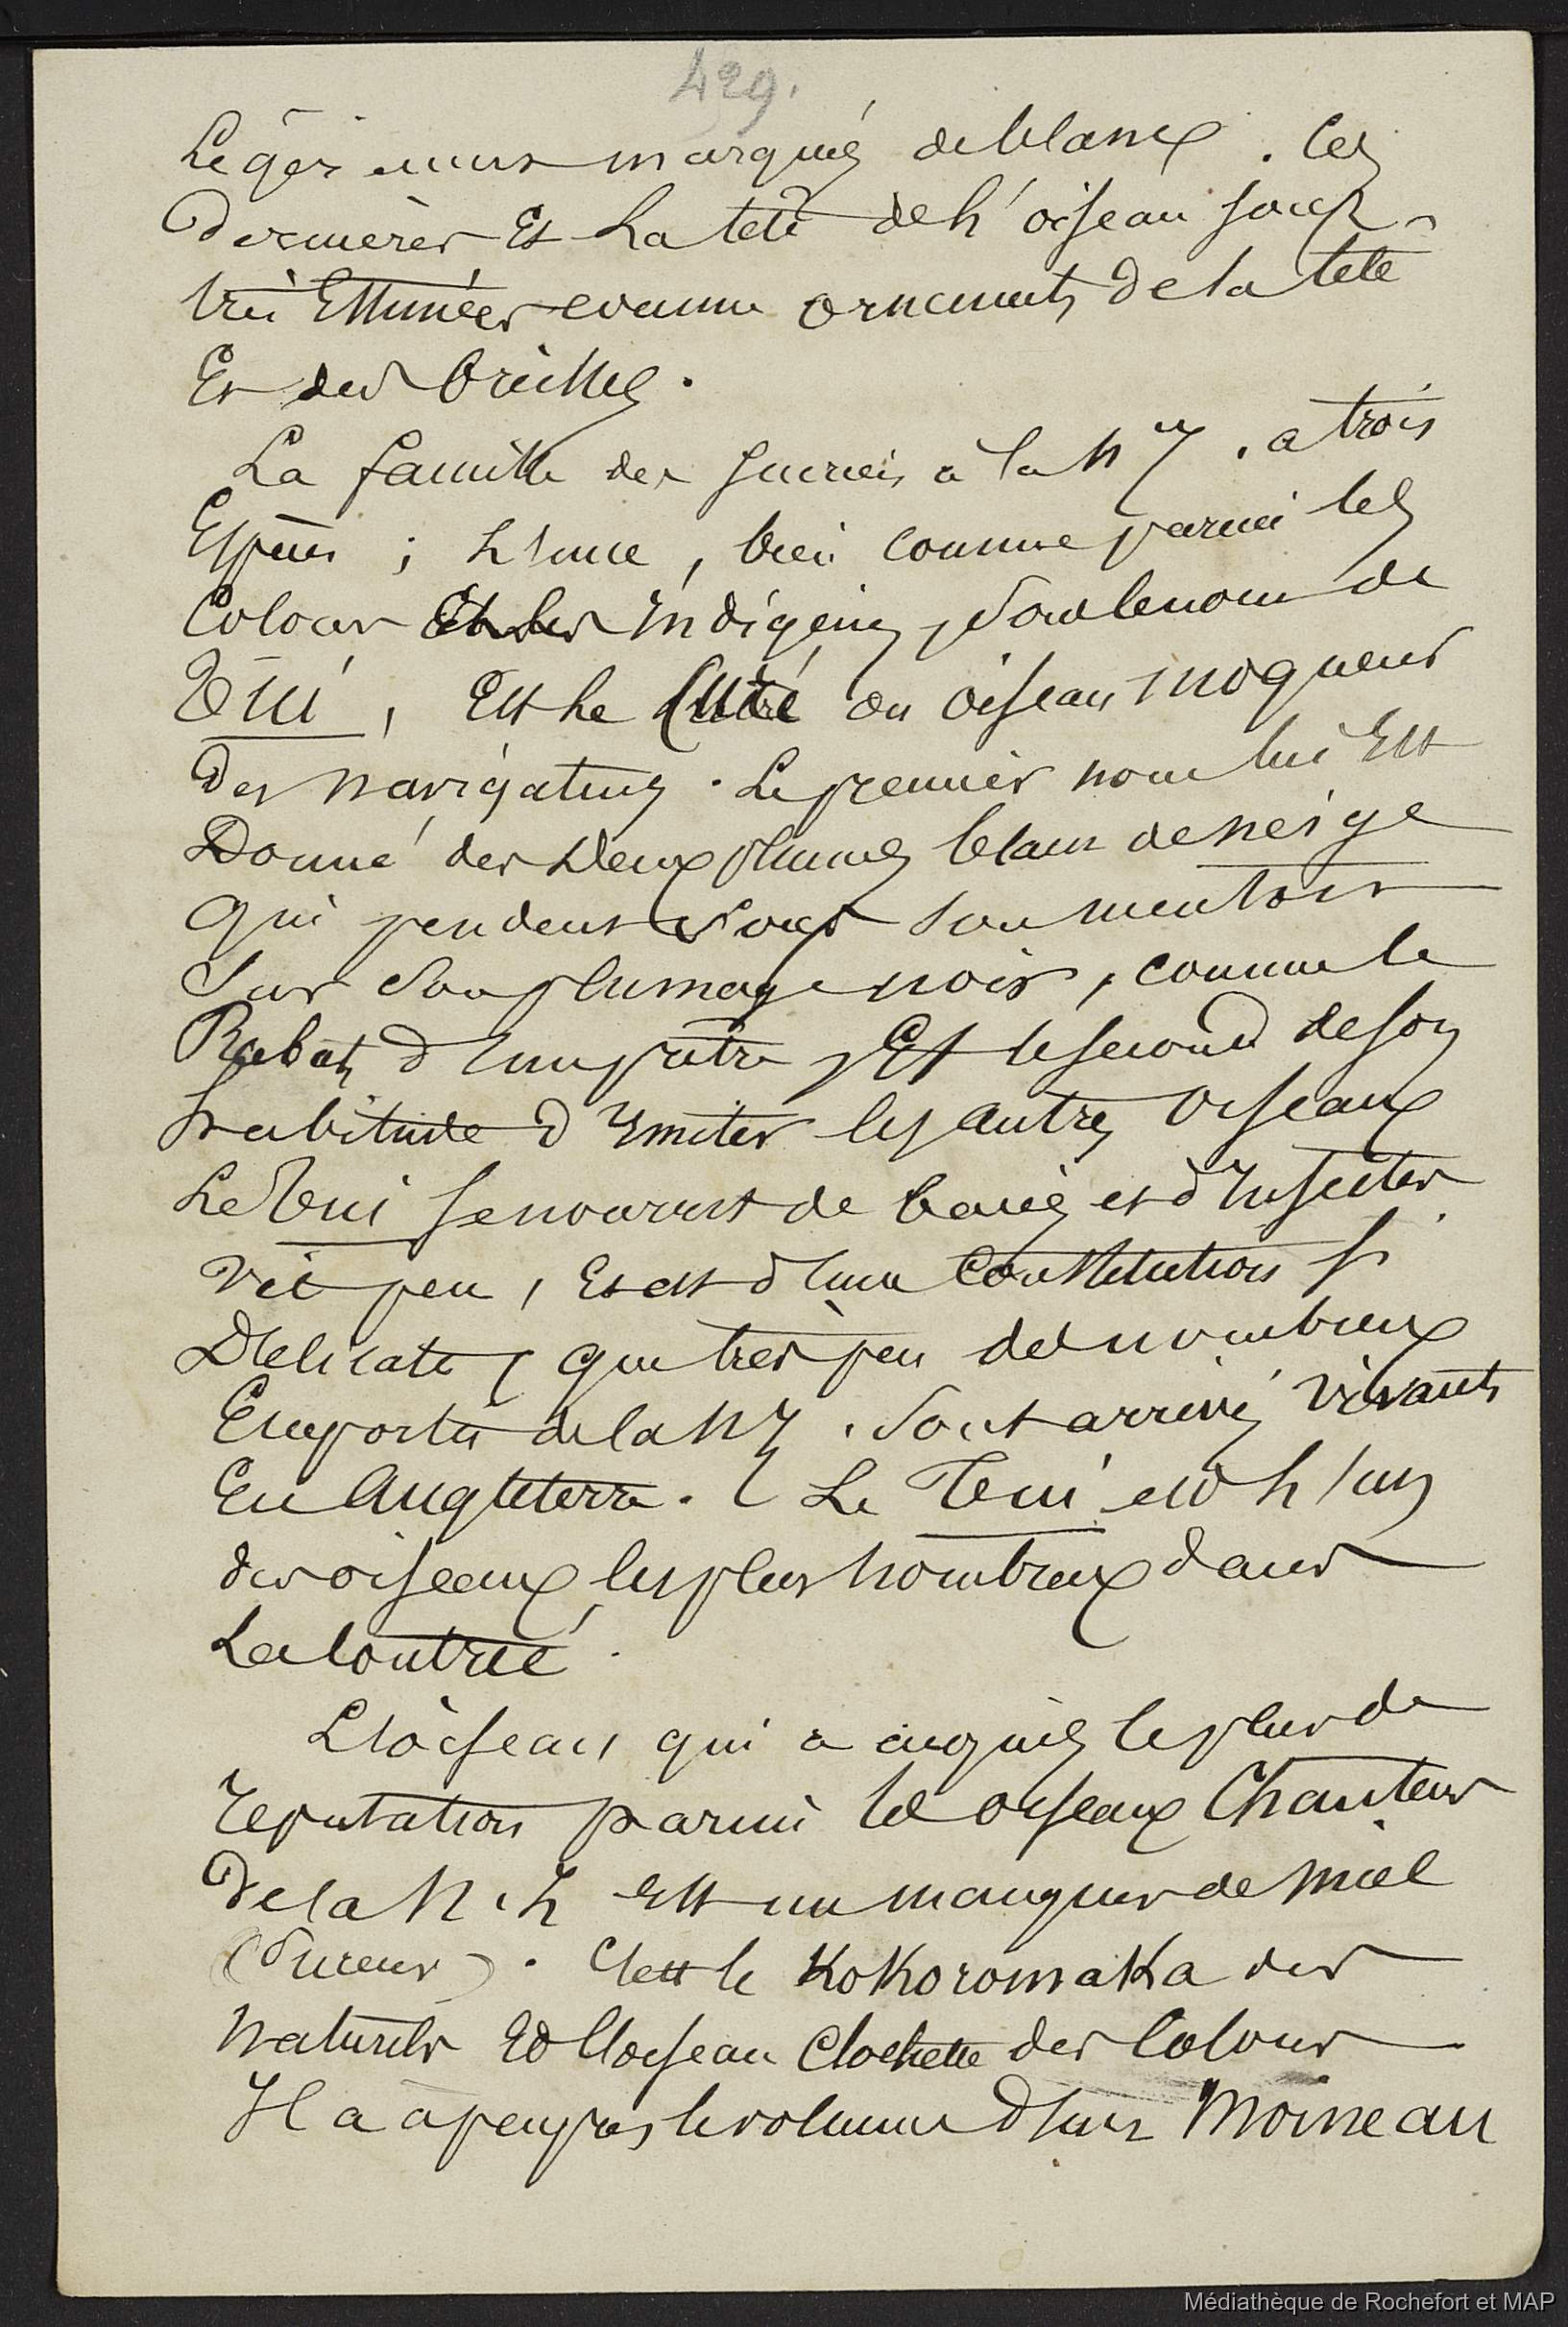 429.
Légèrement marquées de blanc. Ces
Dernières Et La tête de L'oiseau sont
très Estimées comme ornements de la tête
Et des Oreilles.
La famille des sucriers à la NZ. a trois
Espèces ; L'une, bien connue parmi les
Colons Et les Indigènes, Sous le nom de
Tui, Est Le Curé ou oiseau moqueur
Des Navigateurs. Le premier nom lui Est
Donné des Deux plumes blanc de neige
Qui pendent sous son menton
Sur Son plumage noir, comme le
Rabat d'un prêtre, Et le second de son
habitude d'Imiter les autres Oiseaux
Le Tui se nourrit de baies et d'Insectes.
Vit peu, Et est d'une Constitution si
Délicate, que très peu de nombreux
Emportés de la NZ. Sont arrivés vivants
En Angleterre. Le Tui est L'un
des oiseaux les plus Nombreux dans
La Contrée.
L'oiseau qui a acquis le plus de
réputation parmi les oiseaux Chanteurs
De la N.Z Est un mangeur de miel
(Suceur). C'est le KoKoromaKa des
Naturels Et l'oiseau Clochette des Colons
Il a à peu près le volume d'un Moineau
Médiathèque de Rochefort et MAP